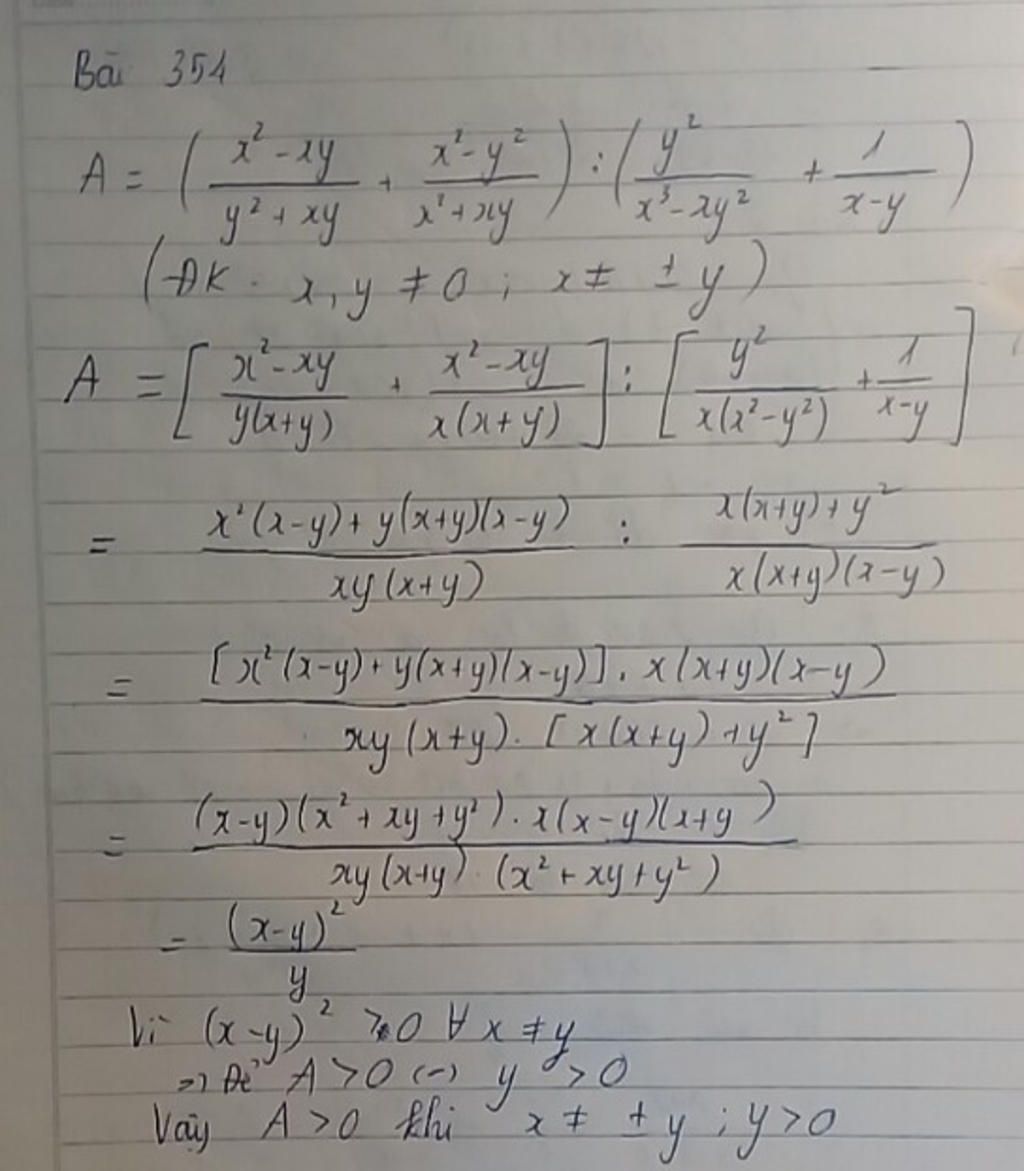 Bài 354
A = ( \frac{x^2 - xy}{y^2 + xy} + \frac{x^2 - y^2}{x^2 + xy} ) : ( \frac{y^2}{x^3 - xy^2} + \frac{1}{x - y} )
(ĐK. x, y ≠ 0 ; x ≠ ± y)
A = [ \frac{x^2 - xy}{y(x+y)} + \frac{x^2 - xy}{x(x+y)} ] : [ \frac{y^2}{x(x^2 - y^2)} + \frac{1}{x-y} ]
= \frac{x^2(x-y) + y(x+y)(x-y)}{xy(x+y)} : \frac{x(x+y) + y^2}{x(x+y)(x-y)}
= \frac{[x^2(x-y) + y(x+y)(x-y)] . x(x+y)(x-y)}{xy(x+y) . [x(x+y) + y^2]}
= \frac{(x-y)(x^2 + xy + y^2) . x(x-y)(x+y)}{xy(x+y) . (x^2 + xy + y^2)}
= \frac{(x-y)^2}{y}
Vì (x-y)^2 > 0 ∀ x ≠ y
=> Để A > 0 (-) y > 0
Vậy A > 0 khi x ≠ ± y ; y > 0